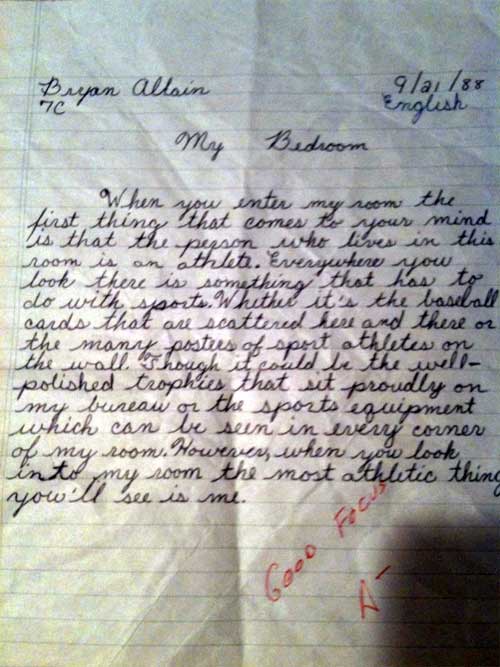 Bryan Allain 9/21/88
7C English
My Bedroom
When you enter my room the
first thing that comes to your mind
is that the person who lives in this
room is an athlete. Everywhere you
look there is something that has to
do with sports. Whether it's the baseball
cards that are scattered here and there or
the many posters of sport athletes on
the wall. Though it could be the well-
polished trophies that sit proudly on
my bureau or the sports equipment
which can be seen in every corner
of my room. However, when you look
into my room the most athletic thing
you'll see is me.
Good Focus
A-